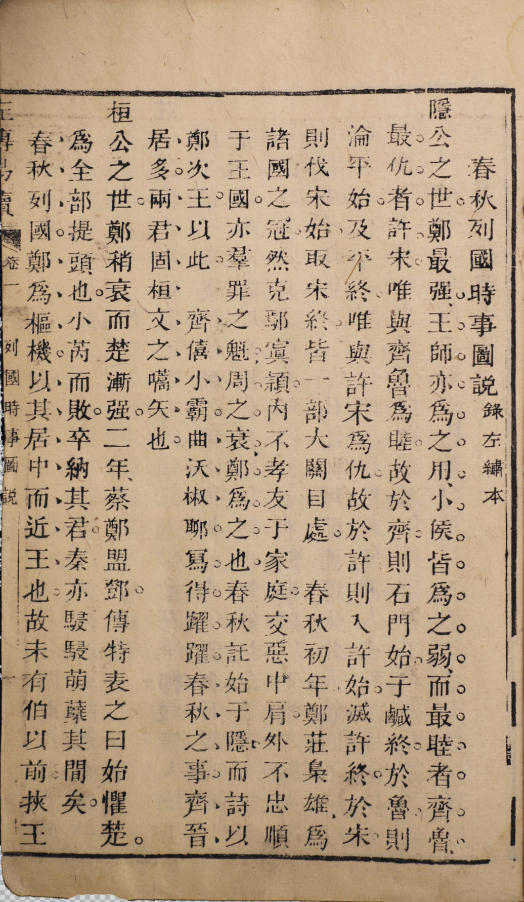 春秋列國時事圖說錄左繡本
隱公之世鄭最强王師亦爲之用小侯皆爲之弱而最睦者齊魯
最仇者許宋唯與齊魯爲睦故於齊則石門始于鹹終於魯則
渝平始及平終唯與許宋爲仇故於許則入許始滅許終於宋
則伐宋始取宋終皆一部大關目處　春秋初年鄭莊梟雄爲
諸國之冠然克鄢寘潁內不孝友于家庭交惡中肩外不忠順
于王國亦羣罪之魁周之衰鄭爲之也春秋託始于隱而詩以
鄭次王以此　齊僖小霸曲沃椒聊寫得躍躍春秋之事齊晉
居多兩君固桓文之嚆矢也
桓公之世鄭稍衰而楚漸强二年蔡鄭盟鄧傳特表之曰始懼楚
爲全部提頭也小芮而敗卒納其君秦亦駸駸萌蘖其間矣
春秋列國鄭爲樞機以其居中而近王也故未有伯以前挾王
卷一　列國時事圖說　一